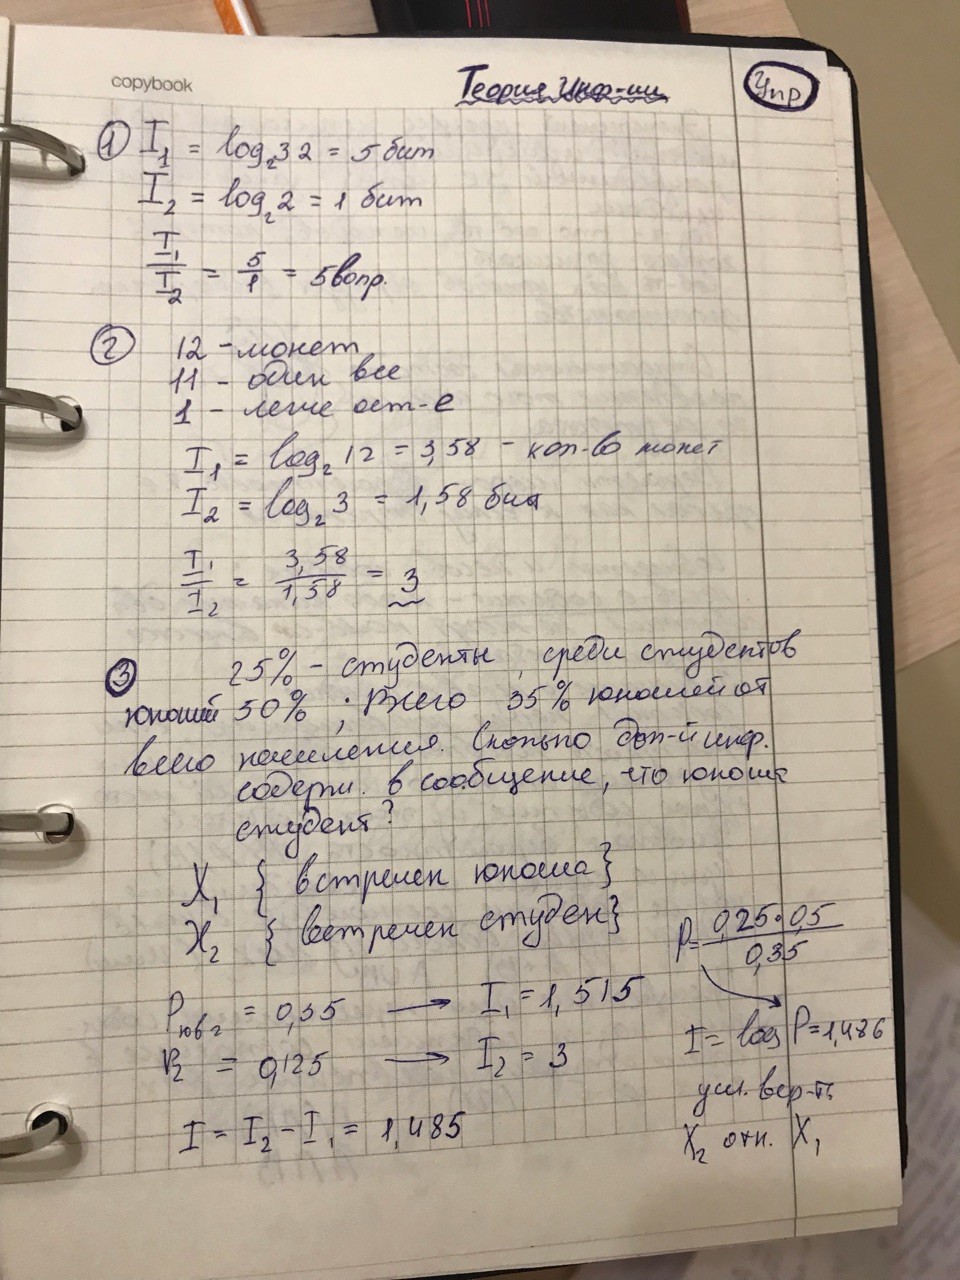 copybook
Теория Инф-ии
Упр
1 I₁ = log₂32 = 5 бит
I₂ = log₂2 = 1 бит
I₁/I₂ = 5/1 = 5 вопр.
2 12 - монет
11 - один вес
1 - легче ост-е
I₁ = log₂12 = 3,58 - кол-во монет
I₂ = log₂3 = 1,58 бит
I₁/I₂ = 3,58/1,58 = 3
3 25% - студенты, среди студентов
юношей 50%; Всего 35% юношей от
всего населения. Сколько доп-й инф.
содерж. в сообщение, что юноша
студент?
X₁ { встречен юноша}
X₂ { встречен студен}
P = 0,25·0,5/0,35
= 0,35 → I₁ = 1,515
P₂ = 0,125 → I₂ = 3
I = I₂ - I₁ = 1,485
I = log P = 1,486
усл. вер-ть
X₂ отн. X₁